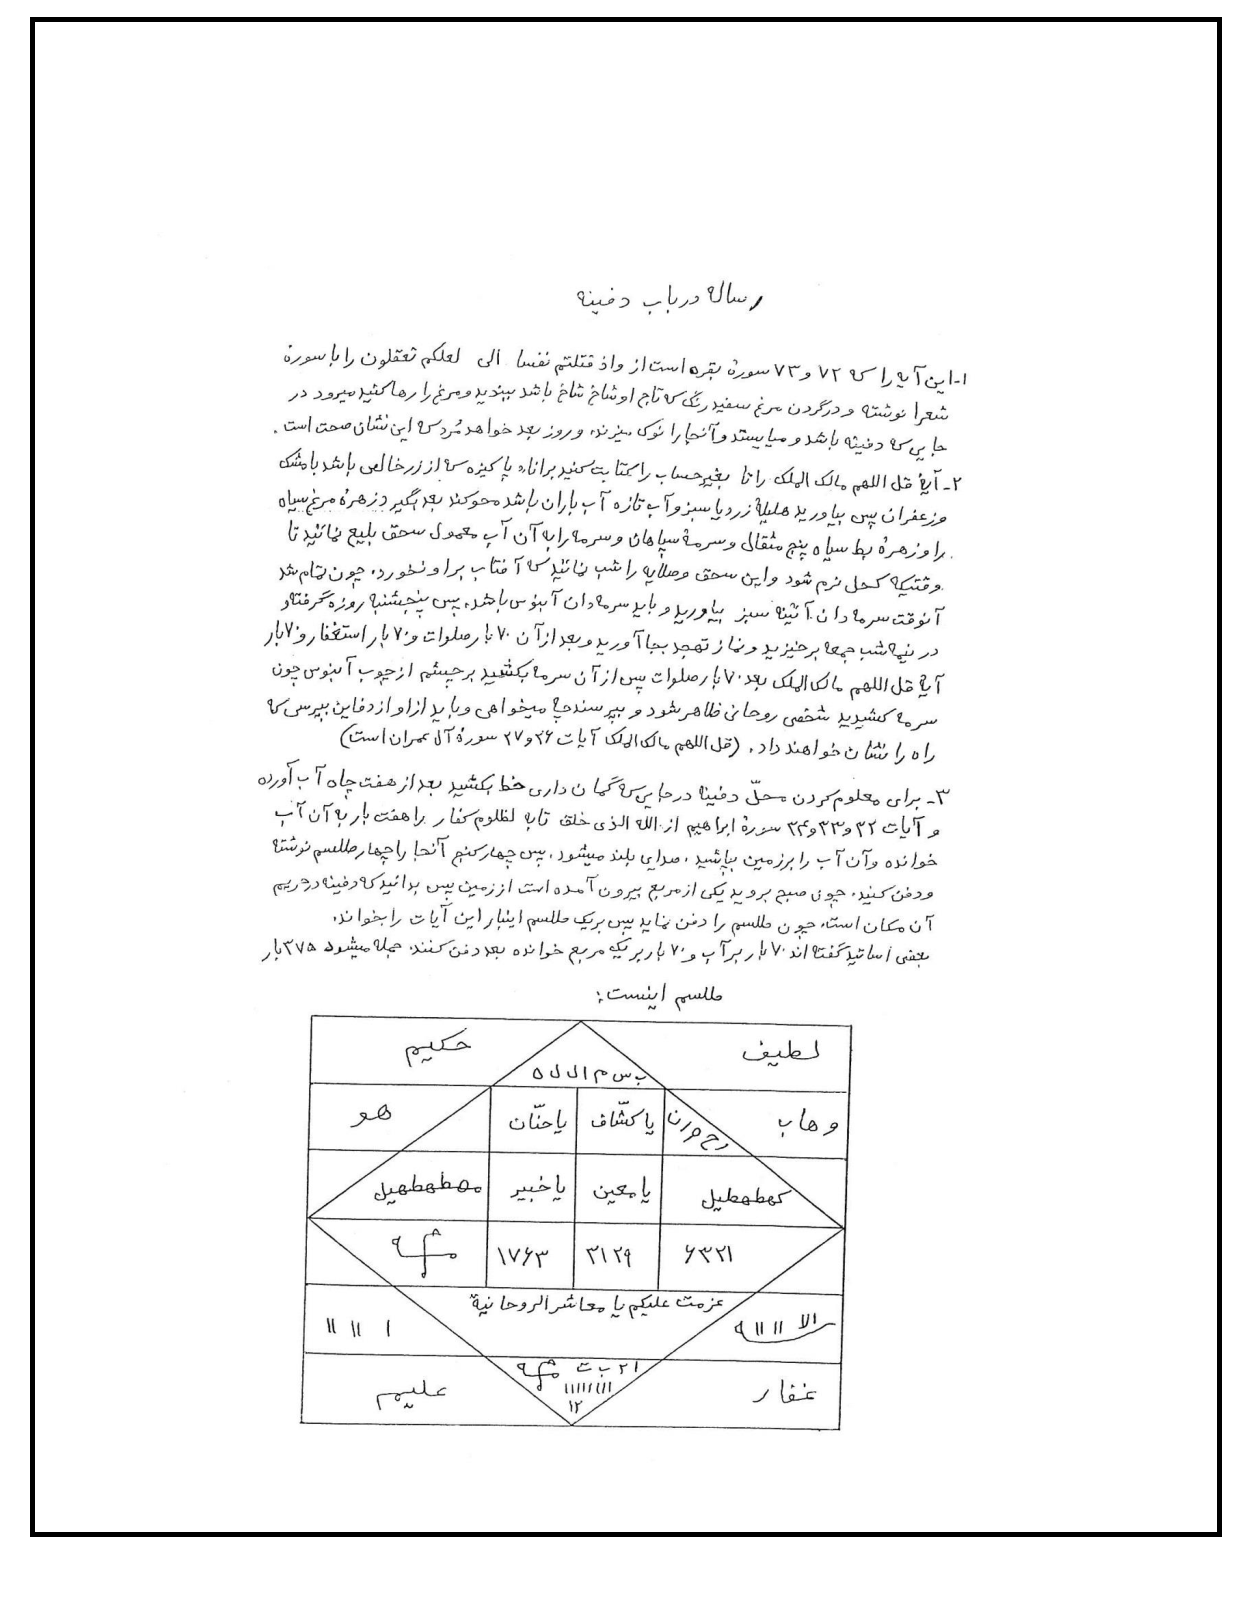 رساله در باب دفینه
۱- این آیه را که ۷۲ و ۷۳ سورهٔ بقره است از واذ قتلتم نفسا الی لعلکم تعقلون را با سورهٔ
شعرا نوشته و در گردن مرغ سفید رنگ که تاج او شاخ شاخ باشد ببندید و مرغ را رها کنید میرود در
جایی که دفینه باشد و میایستد و آنجا را نوک میزند، و روز بعد خواهد مُرد که این نشان صحت است.
۲- آیهٔ قل اللهم مالک الملک را تا بغیر حساب را کتابت کنید بر اناء پاکیزه که از زر خالص باشد با مشک
و زعفران پس بیاورید هلیلهٔ زرد یا سبز و آب تازه آب باران باشد محو کند بعد بگیرد زهرهٔ مرغ سیاه
را و زهرهٔ بط سیاه پنج مثقال و سرمهٔ سپاهان و سرمه را به آن آب معمول سحق بلیغ نمائید تا
وقتیکه کحل نرم شود و این سحق و صلایه را شب نمائید که آفتاب بر او نخورد، چون تمام شد
آنوقت سرمه دان آئینه سبز بیاورید و باید سرمه دان آبنوس باشد، پس پنجشنبه روزه گرفته و
در نیمه شب جمعه برخیزید و نماز تهجد بجا آورید و بعد از آن ۷۰ بار صلوات و ۷۰ بار استغفار و ۷۰ بار
آیهٔ قل اللهم مالک الملک بعد ۷۰ بار صلوات پس از آن سرمه بکشید بر چشم از چوب آبنوس چون
سرمه کشیدید شخصی روحانی ظاهر شود و بپرسند چه میخواهی و باید از او از دفاین بپرسی که
راه را نشان خواهند داد. (قل اللهم مالک الملک آیات ۲۶ و ۲۷ سورهٔ آل عمران است)
۳- برای معلوم کردن محلّ دفینه در جایی که گمان داری خط بکشید بعد از هفت چاه آب آورده
و آیات ۳۲ و ۳۳ و ۳۴ سورهٔ ابراهیم از الله الذی خلق تا به لظلوم کفار را هفت بار به آن آب
خوانده و آن آب را بر زمین بپاشید، صدای بلند میشود، پس چهار کنج آنجا را چهار طلسم نوشته
و دفن کنید، چون صبح بروید یکی از مربع بیرون آمده است از زمین پس بدانید که دفینه در حریم
آن مکان است، چون طلسم را دفن نماید پس بر یک طلسم اینبار این آیات را بخواند،
بعضی اساتید گفته اند ۷۰ بار بر آب و ۷۰ بار بر یک مربع خوانده بعد دفن کنند، جمله میشود ۳۷۵ بار
طلسم اینست:
لطیف حکیم
ب س م ا ل ل ه
وهاب رح م ا ن یا کشّاف یا حنّان هو
کهطهطیل یا معین یا خبیر مهطهطهیل
۶۳۲۱ ۳۱۲۹ ۱۷۶۳
عزمت علیکم یا معاشر الروحانیة
غفار ۱۲ علیم